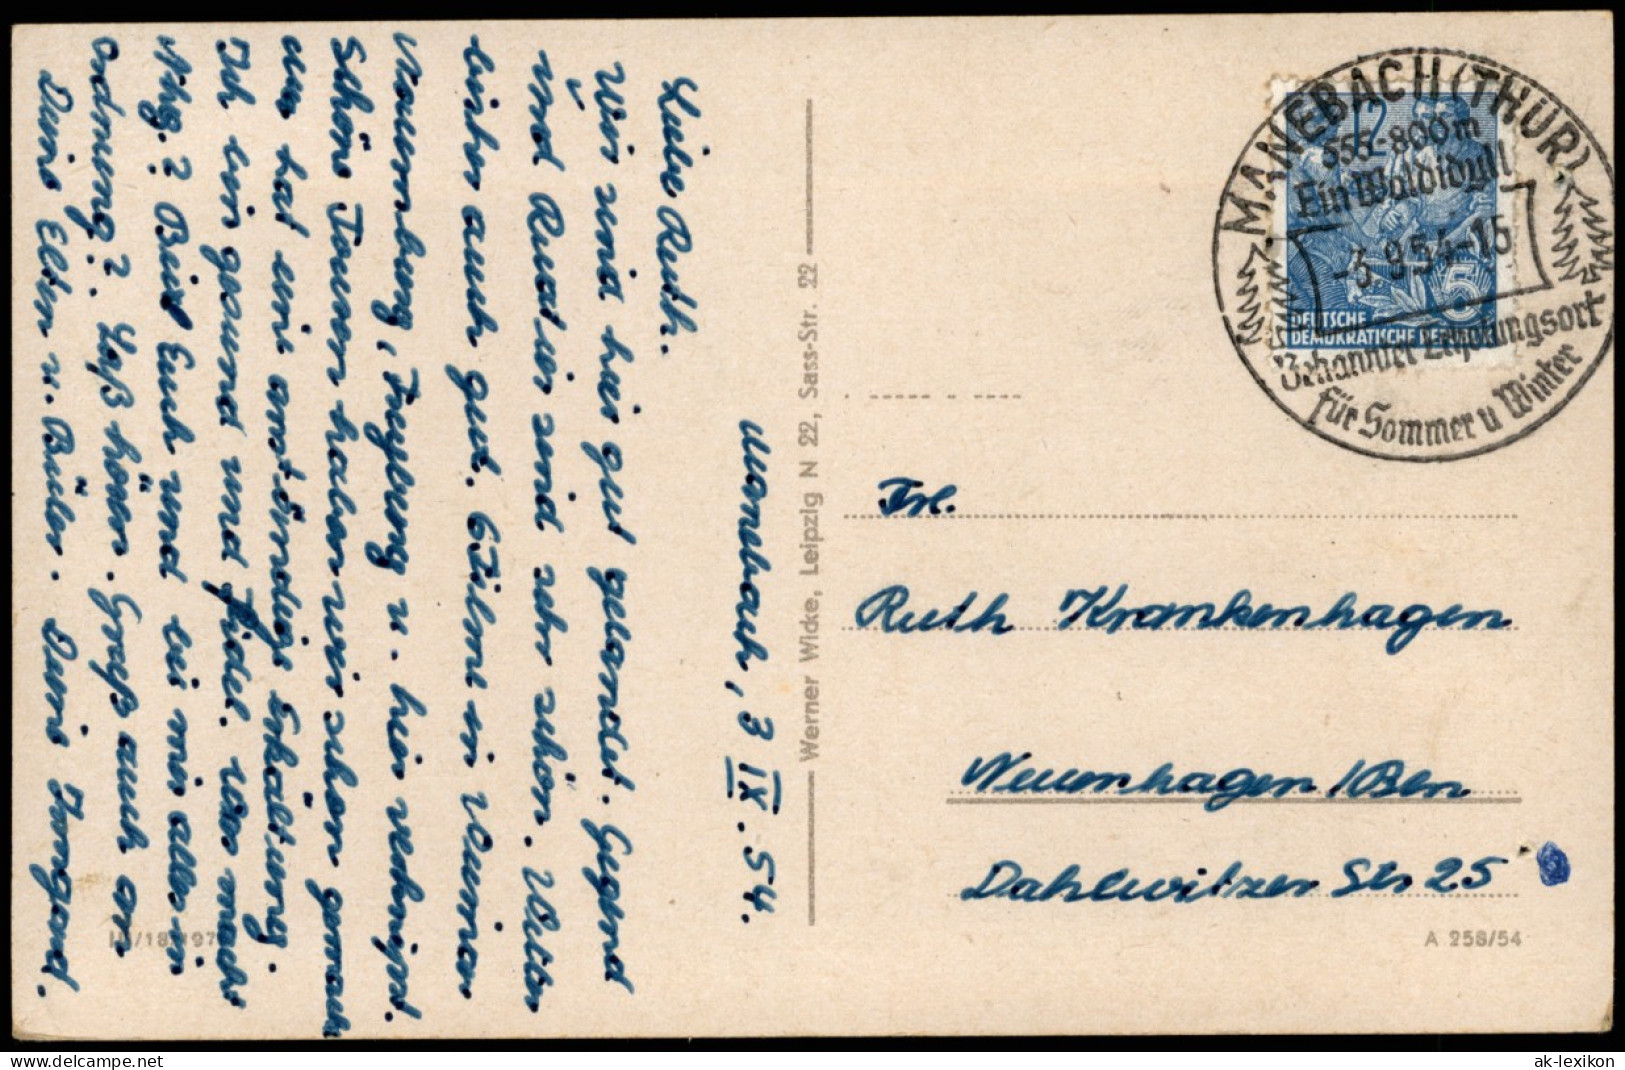 Manebach, 3.IX.54.
Liebe Ruth.
Wir sind hier gut gelandet. Gegend
und Quartier sind sehr schön. Wetter
bisher auch gut. 6 Filme in
Naumburg, Freyburg u. hier verknipst.
Schöne Touren haben wir schon gemacht
nur hat eine anständige Erkältung.
Ich bin gesund und fidel. Was macht
Ihr? Bei Euch und bei mir alles in
Ordnung? Laß hören. Grüß auch
Deine Eltern u. Brüder. Deine Irmgard.
III/18/197
Werner Wicke, Leipzig N 22, Sass-Str. 22
MANEBACH (THÜR)
555-800m
Ein Waldidyll
-3.9.54-15
Bekannter Erholungsort
für Sommer u Winter
12
5
DEUTSCHE
DEMOKRATISCHE REP
Frl.
Ruth Krankenhagen
Neuenhagen/Bln
Dahlwitzer Str 25
A 258/54
ak-lexikon